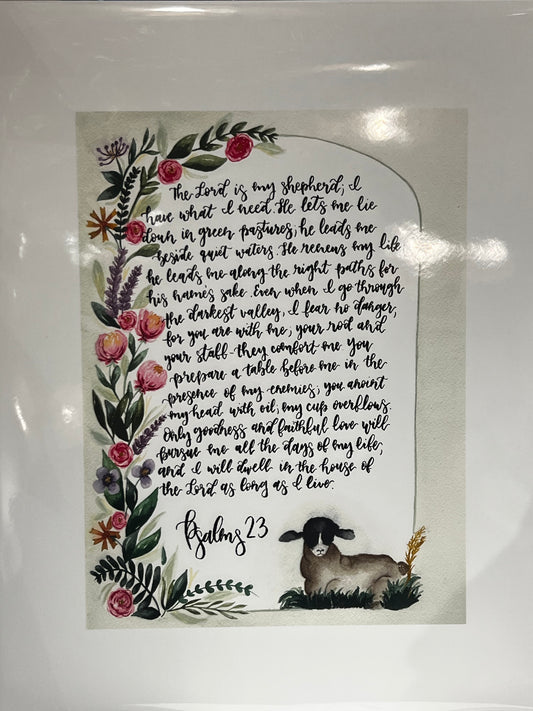 The Lord is my shepherd; I
have what I need. He lets me lie
down in green pastures; he leads me
beside quiet waters. He renews my life
he leads me along the right paths for
his name's sake. Even when I go through
the darkest valley, I fear no danger,
for you are with me; your rod and
your staff- they comfort me. You
prepare a table before me in the
presence of my enemies; you anoint
my head with oil; my cup overflows.
Only goodness and faithful love will
pursue me all the days of my life,
and I will dwell in the house of
the Lord as long as I live.
Psalms 23